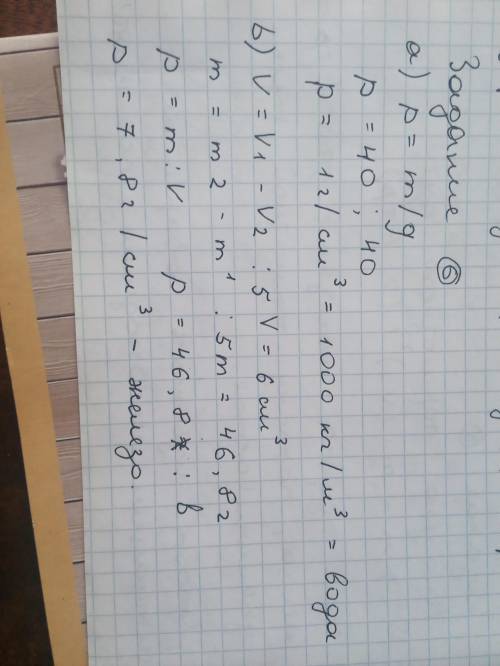 Задание ⑥
a) p = m/g
p = 40 : 40
p = 1г/см³ = 1000 кг/м³ = вода
b) V = V1 - V2 : 5 V = 6 см³
m = m2 - m1 : 5m = 46,8г
p = m:V p = 46,8 : 6
p = 7,8г/см³ - железо.